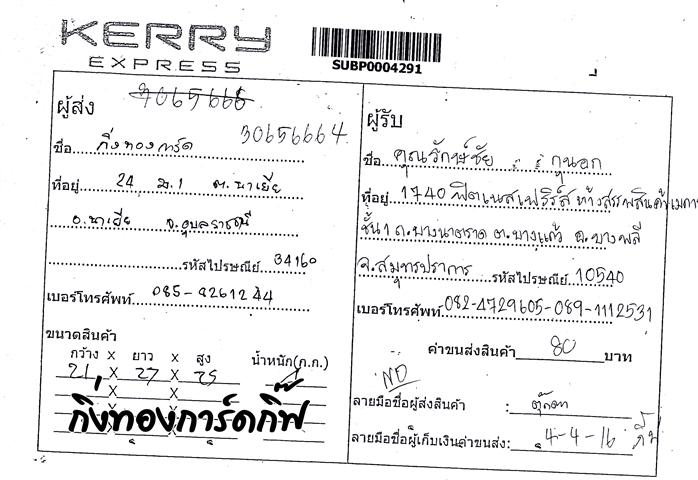 KERRY
EXPRESS
SUBP0004291
ผู้ส่ง 3065666
30656664
ชื่อ กิ่งทองการ์ด
ที่อยู่ 24 ม.1 ต.นาเยีย
อ.นาเยีย จ.อุบลราชธานี
รหัสไปรษณีย์ 34160
เบอร์โทรศัพท์ 085-9261244
ขนาดสินค้า
กว้าง X ยาว X สูง น้ำหนัก(ก.ก.)
21 X 27 X 25 1
X X
X X
X X
กิ่งทองการ์ดกิ๊ฟ
ผู้รับ
ชื่อ คุณรักษ์ชัย กุนอก
ที่อยู่ 1740 ฟิตเนสเฟิร์ส ห้างสรรพสินค้าเมกา
ชั้น 1 ถ.บางนาตราด ต.บางแก้ว อ.บางพลี
จ.สมุทรปราการ รหัสไปรษณีย์ 10540
เบอร์โทรศัพท์ 082-4729605-089-1112531
ค่าขนส่งสินค้า 80 บาท
ND
ลายมือชื่อผู้ส่งสินค้า : ตุ๊กตา
ลายมือชื่อผู้เก็บเงินค่าขนส่ง: 4-4-16